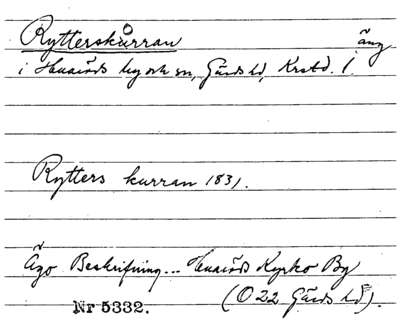 Rytterskurran äng
i Huaröds by och sn, Gärds hd, Krstd. l.
Rytters kurran 1831.
Ägo Beskrifning... Huaröds Kyrko By
Nr 5332. (O 22 Gärds hd).